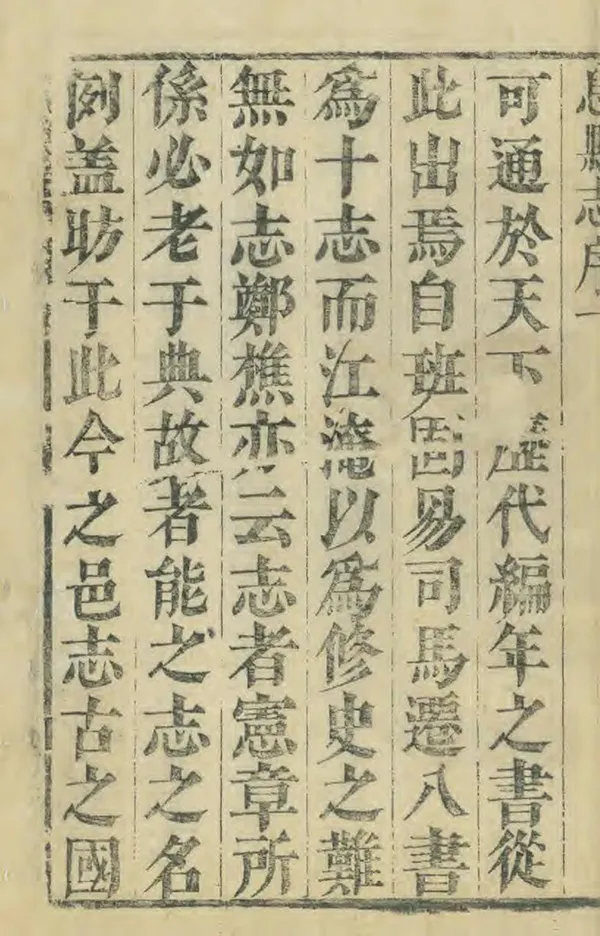 息縣志序
可通於天下歷代編年之書從
此出焉自班固易司馬遷八書
爲十志而江淹以爲修史之難
無如志鄭樵亦云志者憲章所
係必老于典故者能之志之名
例盖昉于此今之邑志古之國